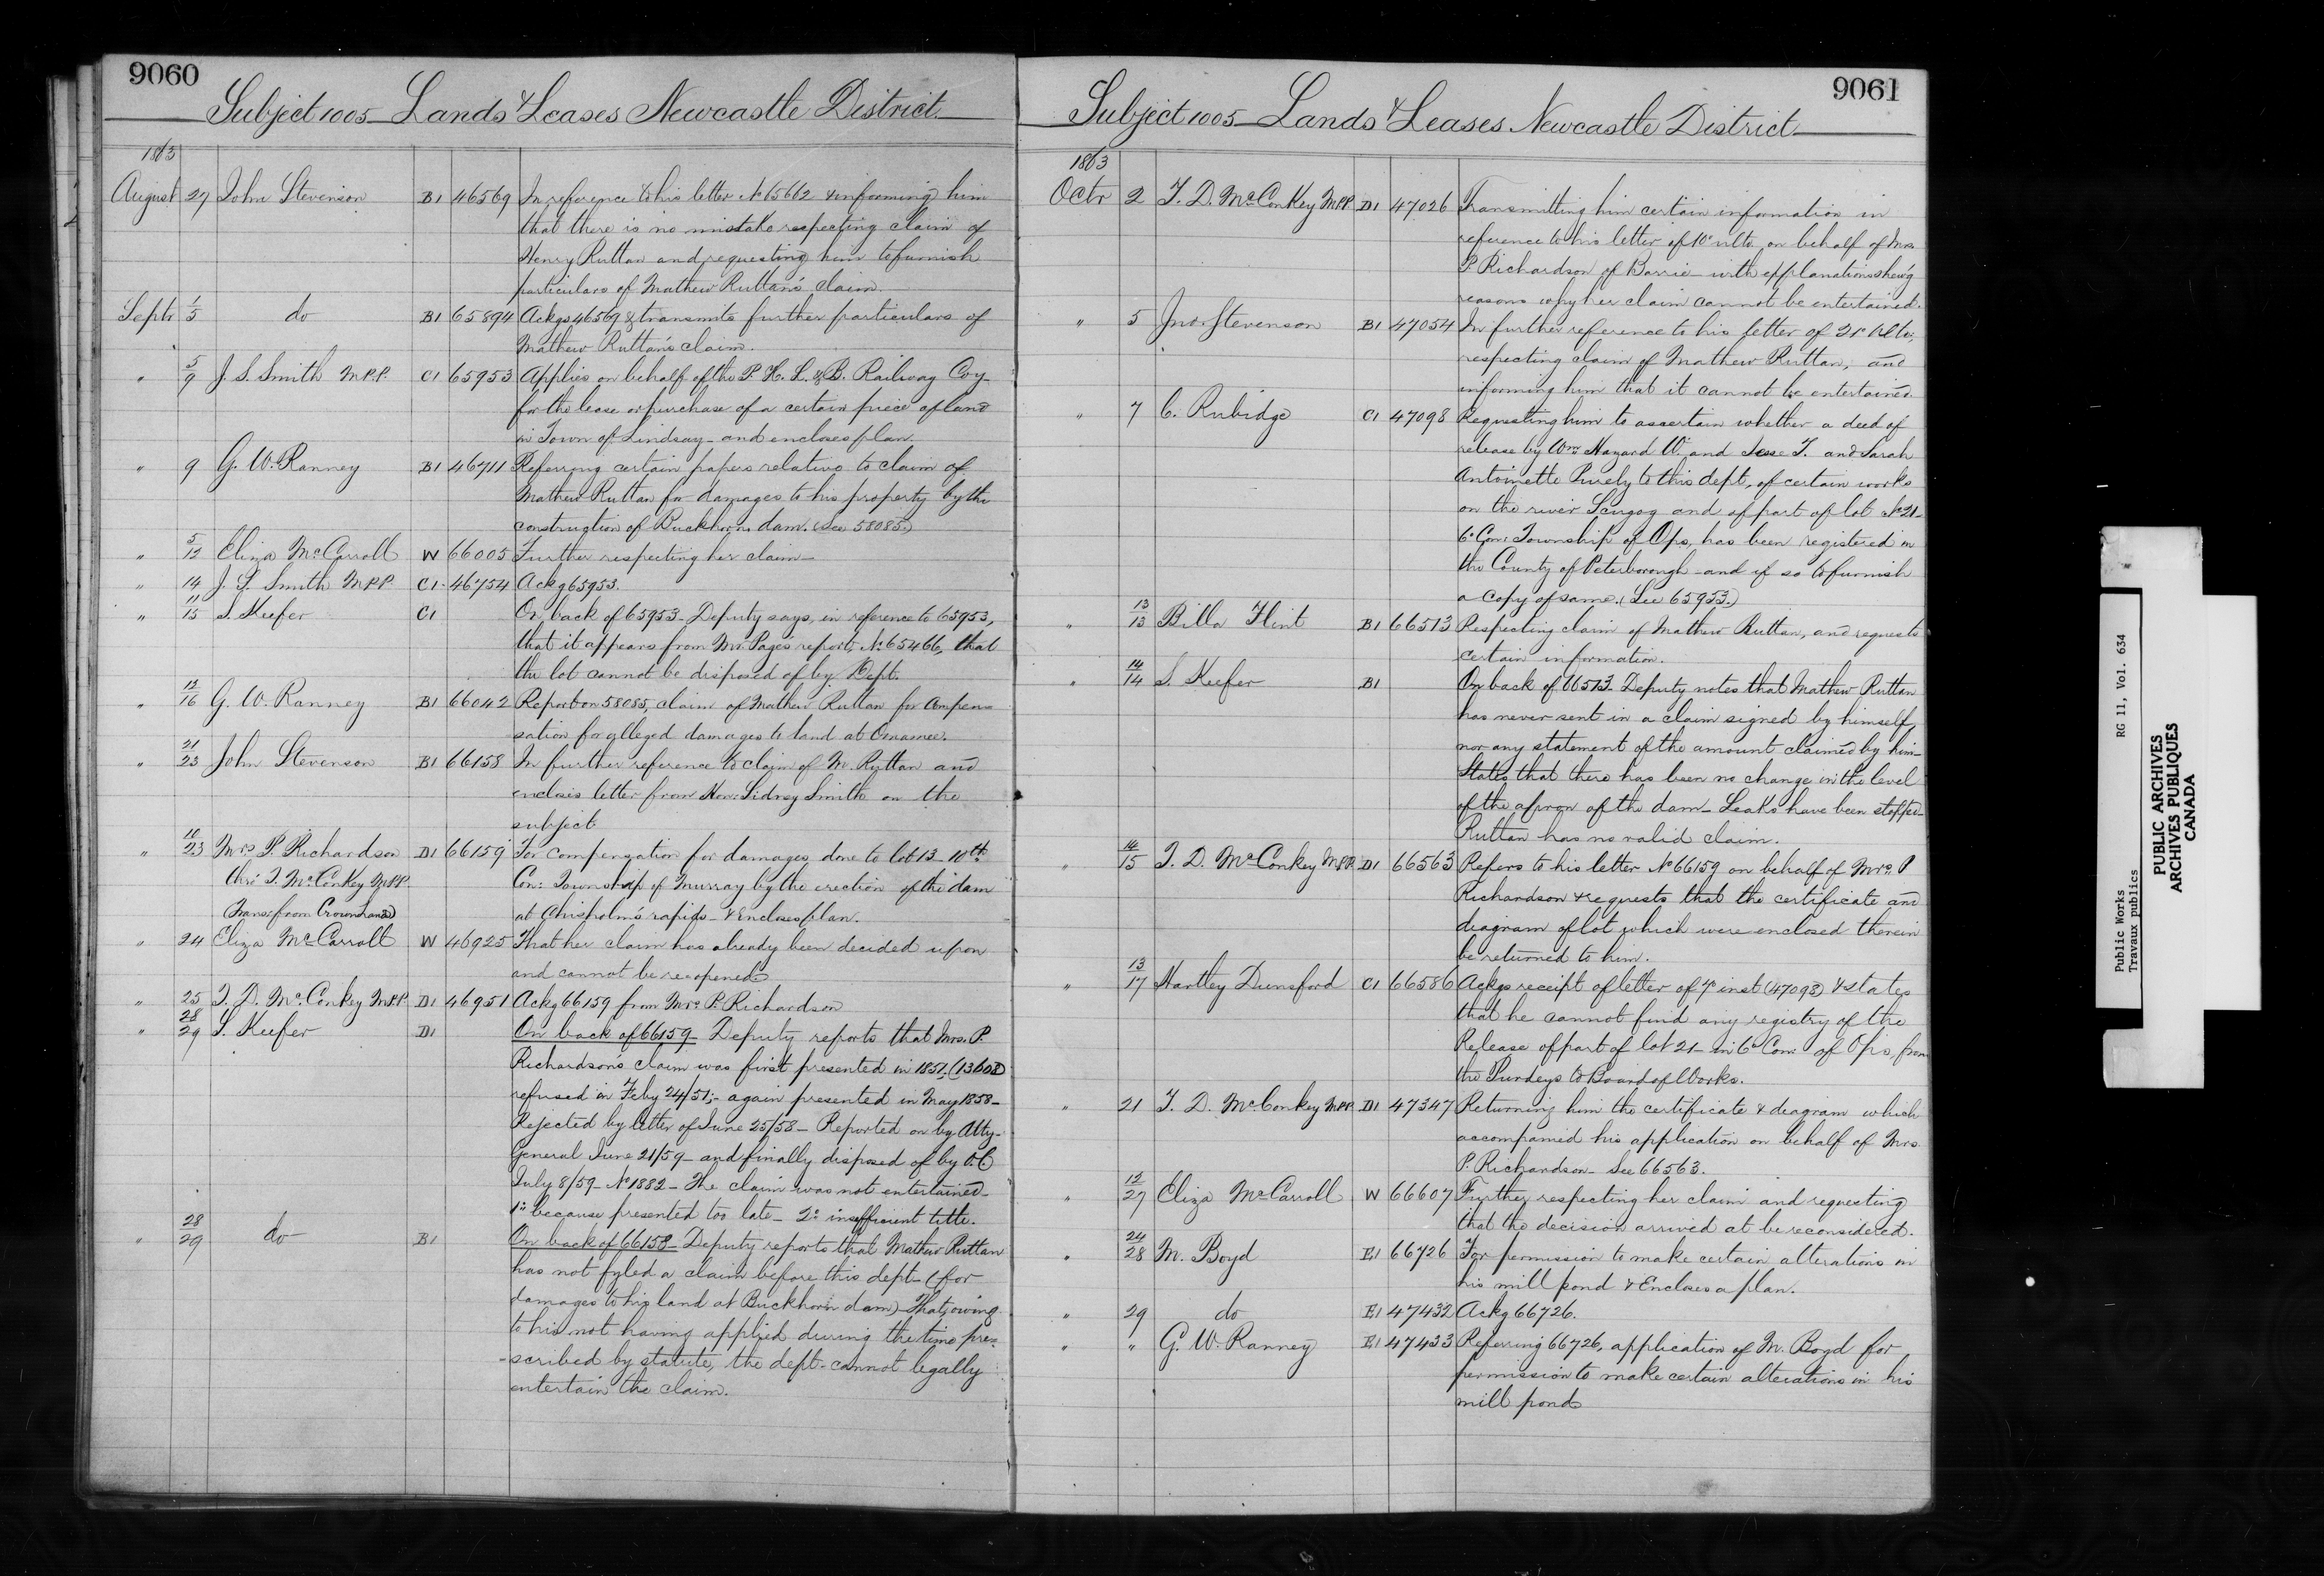 9060
Subject 1005 Lands & Leases Newcastle District.
1863
August 27 John Stevenson B1 46569 In reference to his letter No 65662 & informing him
that there is no mistake respecting claim of
Henry Ruttan and requesting him to furnish
particulars of Mathew Ruttan's claim.
Septr 1/5 do B1 65894 Ackgs 46569 & transmits further particulars of
Mathew Ruttan's claim.
" 5/9 J. S. Smith M.P.P. C1 65953 Applies on behalf of the P. H. L. & B. Railway Coy
for the lease or purchase of a certain piece of land
in Town of Lindsay and encloses plan.
" 9 G. W. Ranney B1 46711 Referring certain papers relative to claim of
Mathew Ruttan for damages to his property by the
construction of Buckhorn dam. (See 58085)
" 5/12 Eliza McCarroll W 66005 Further respecting her claim
" 14 J. S. Smith M.P.P. C1 46754 Ackg 65953.
" 11/15 S. Keefer C1 On back of 65953 Deputy says, in reference to 65953,
that it appears from Mr. Page's report, No 65466, that
the lot cannot be disposed of by Dept.
" 12/16 G. W. Ranney B1 66042 Report on 58085, claim of Mathew Ruttan for compen-
sation for alleged damages to land at Omamee.
" 21/23 John Stevenson B1 66158 In further reference to claim of M. Ruttan and
encloses letter from Hon: Sidney Smith on the
subject
" 10/23 Mrs P. Richardson D1 66159 For compensation for damages done to lot 13 - 10th
thro' T. McConkey M.P.P. Con: Township of Murray by the erection of the dam
(Trans: from Crown Lands) at Chisholm's rapids - & Encloses plan.
" 24 Eliza McCarroll W 46925 That her claim has already been decided upon
and cannot be reopened
" 25 T. D. McConkey M.P.P. D1 46951 Ackg 66159 from Mrs P. Richardson
" 28/29 S. Keefer D1 On back of 66159 Deputy reports that Mrs. P.
Richardson's claim was first presented in 1851. (13602)
refused in Feby 24/51; - again presented in May 1858 -
Rejected by letter of June 25/58 - Reported on by Atty-
General June 21/59 - and finally disposed of by O.C
July 8/59 - No 1882 - The claim was not entertained -
1o because presented too late - 2o insufficient title.
" 28/29 do B1 On back of 66158 - Deputy reports that Mathew Ruttan
has not fyled a claim before this dept (for
damages to his land at Buckhorn dam) - That owing
to his not having applied during the time pre-
-scribed by statute, the dept. cannot legally
entertain the claim.
9061
Subject 1005 Lands & Leases Newcastle District
1863
Octr 2 T. D. McConkey M.P.P. D1 47026 Transmitting him certain information in
reference to his letter of 10th ulto. on behalf of Mrs
P. Richardson of Barrie - with explanations shew'g
reasons why her claim cannot be entertained.
" 5 Jno. Stevenson B1 47054 In further reference to his letter of 21st ulto,
respecting claim of Mathew Ruttan, and
informing him that it cannot be entertained
" 7 C. Rubidge C1 47098 Requesting him to ascertain whether a deed of
release by Wm Hazard W. and Jesse T. and Sarah
Antoinette Purdy to this dept, of certain works
on the river Scugog and of part of lot No 21 -
6th Con: Township of Ops, has been registered in
the County of Peterborough - and if so to furnish
a copy of same. (See 65953.)
" 13/13 Billa Flint B1 66513 Respecting claim of Mathew Ruttan, and requests
certain information.
" 14/14 S. Keefer B1 On back of 66513 - Deputy notes that Mathew Ruttan
has never sent in a claim signed by himself,
nor any statement of the amount claimed by him -
States that there has been no change in the level
of the apron of the dam - Leaks have been stopped -
Ruttan has no valid claim.
" 14/15 T. D. McConkey M.P.P. D1 66563 Refers to his letter No 66159 on behalf of Mrs P
Richardson & requests that the certificate and
diagram of lot which were enclosed therein
be returned to him.
" 13/17 Hartley Dunsford C1 66586 Ackgs receipt of letter of 7th inst (47098) & states
that he cannot find any registry of the
Release of part of lot 21 - in 6th Con: of Ops, from
the Purdeys to Board of Works.
" 21 T. D. McConkey M.P.P. D1 47347 Returning him the certificate & diagram which
accompanied his application on behalf of Mrs.
P. Richardson - See 66563.
" 12/27 Eliza McCarroll W 66607 Further respecting her claim and requesting
that the decision arrived at be reconsidered.
" 24/28 M. Boyd E1 66726 For permission to make certain alterations in
his mill pond & Encloses a plan.
" 29 do E1 47432 Ackg 66726.
" " G. W. Ranney E1 47433 Referring 66726, application of M. Boyd for
permission to make certain alterations in his
mill pond
Public Works RG 11, Vol. 634
Travaux publics
PUBLIC ARCHIVES
ARCHIVES PUBLIQUES
CANADA